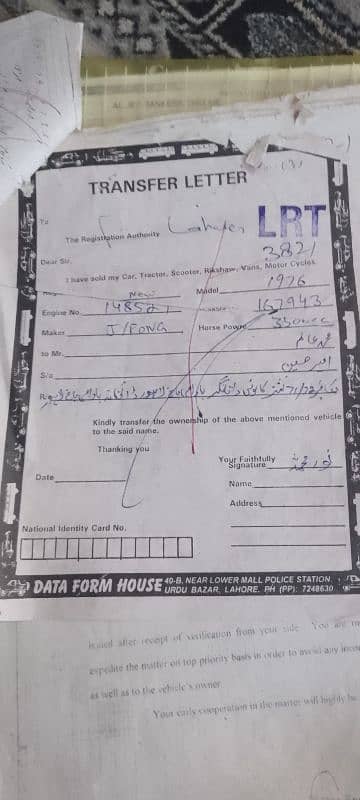 TRANSFER LETTER
To
The Registration Authority Lahore LRT
Dear Sir, 3821
I have sold my Car, Tractor, Scooter, Rikshaw, Vans, Motor Cycles
New Model 1976
Engine No. 148521 167943
Maker J/FONG Horse Power 350cc
to Mr. محمد عالم
S/o
Kindly transfer the ownership of the above mentioned vehicle
to the said name.
Thanking you
Your Faithfully
Signature نور محمد
Date
Name
Address
National Identity Card No.
DATA FORM HOUSE 40-B, NEAR LOWER MALL POLICE STATION
URDU BAZAR, LAHORE. PH (PP): 7248630
issued after receipt of verification from your side. You are
expedite the matter on top priority basis in order to avoid any
as well as to the vehicle's owner.
Your early cooperation in the matter will highly be